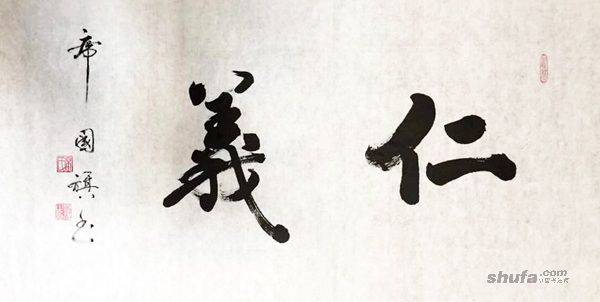 仁義
席國旗书
shufa.com